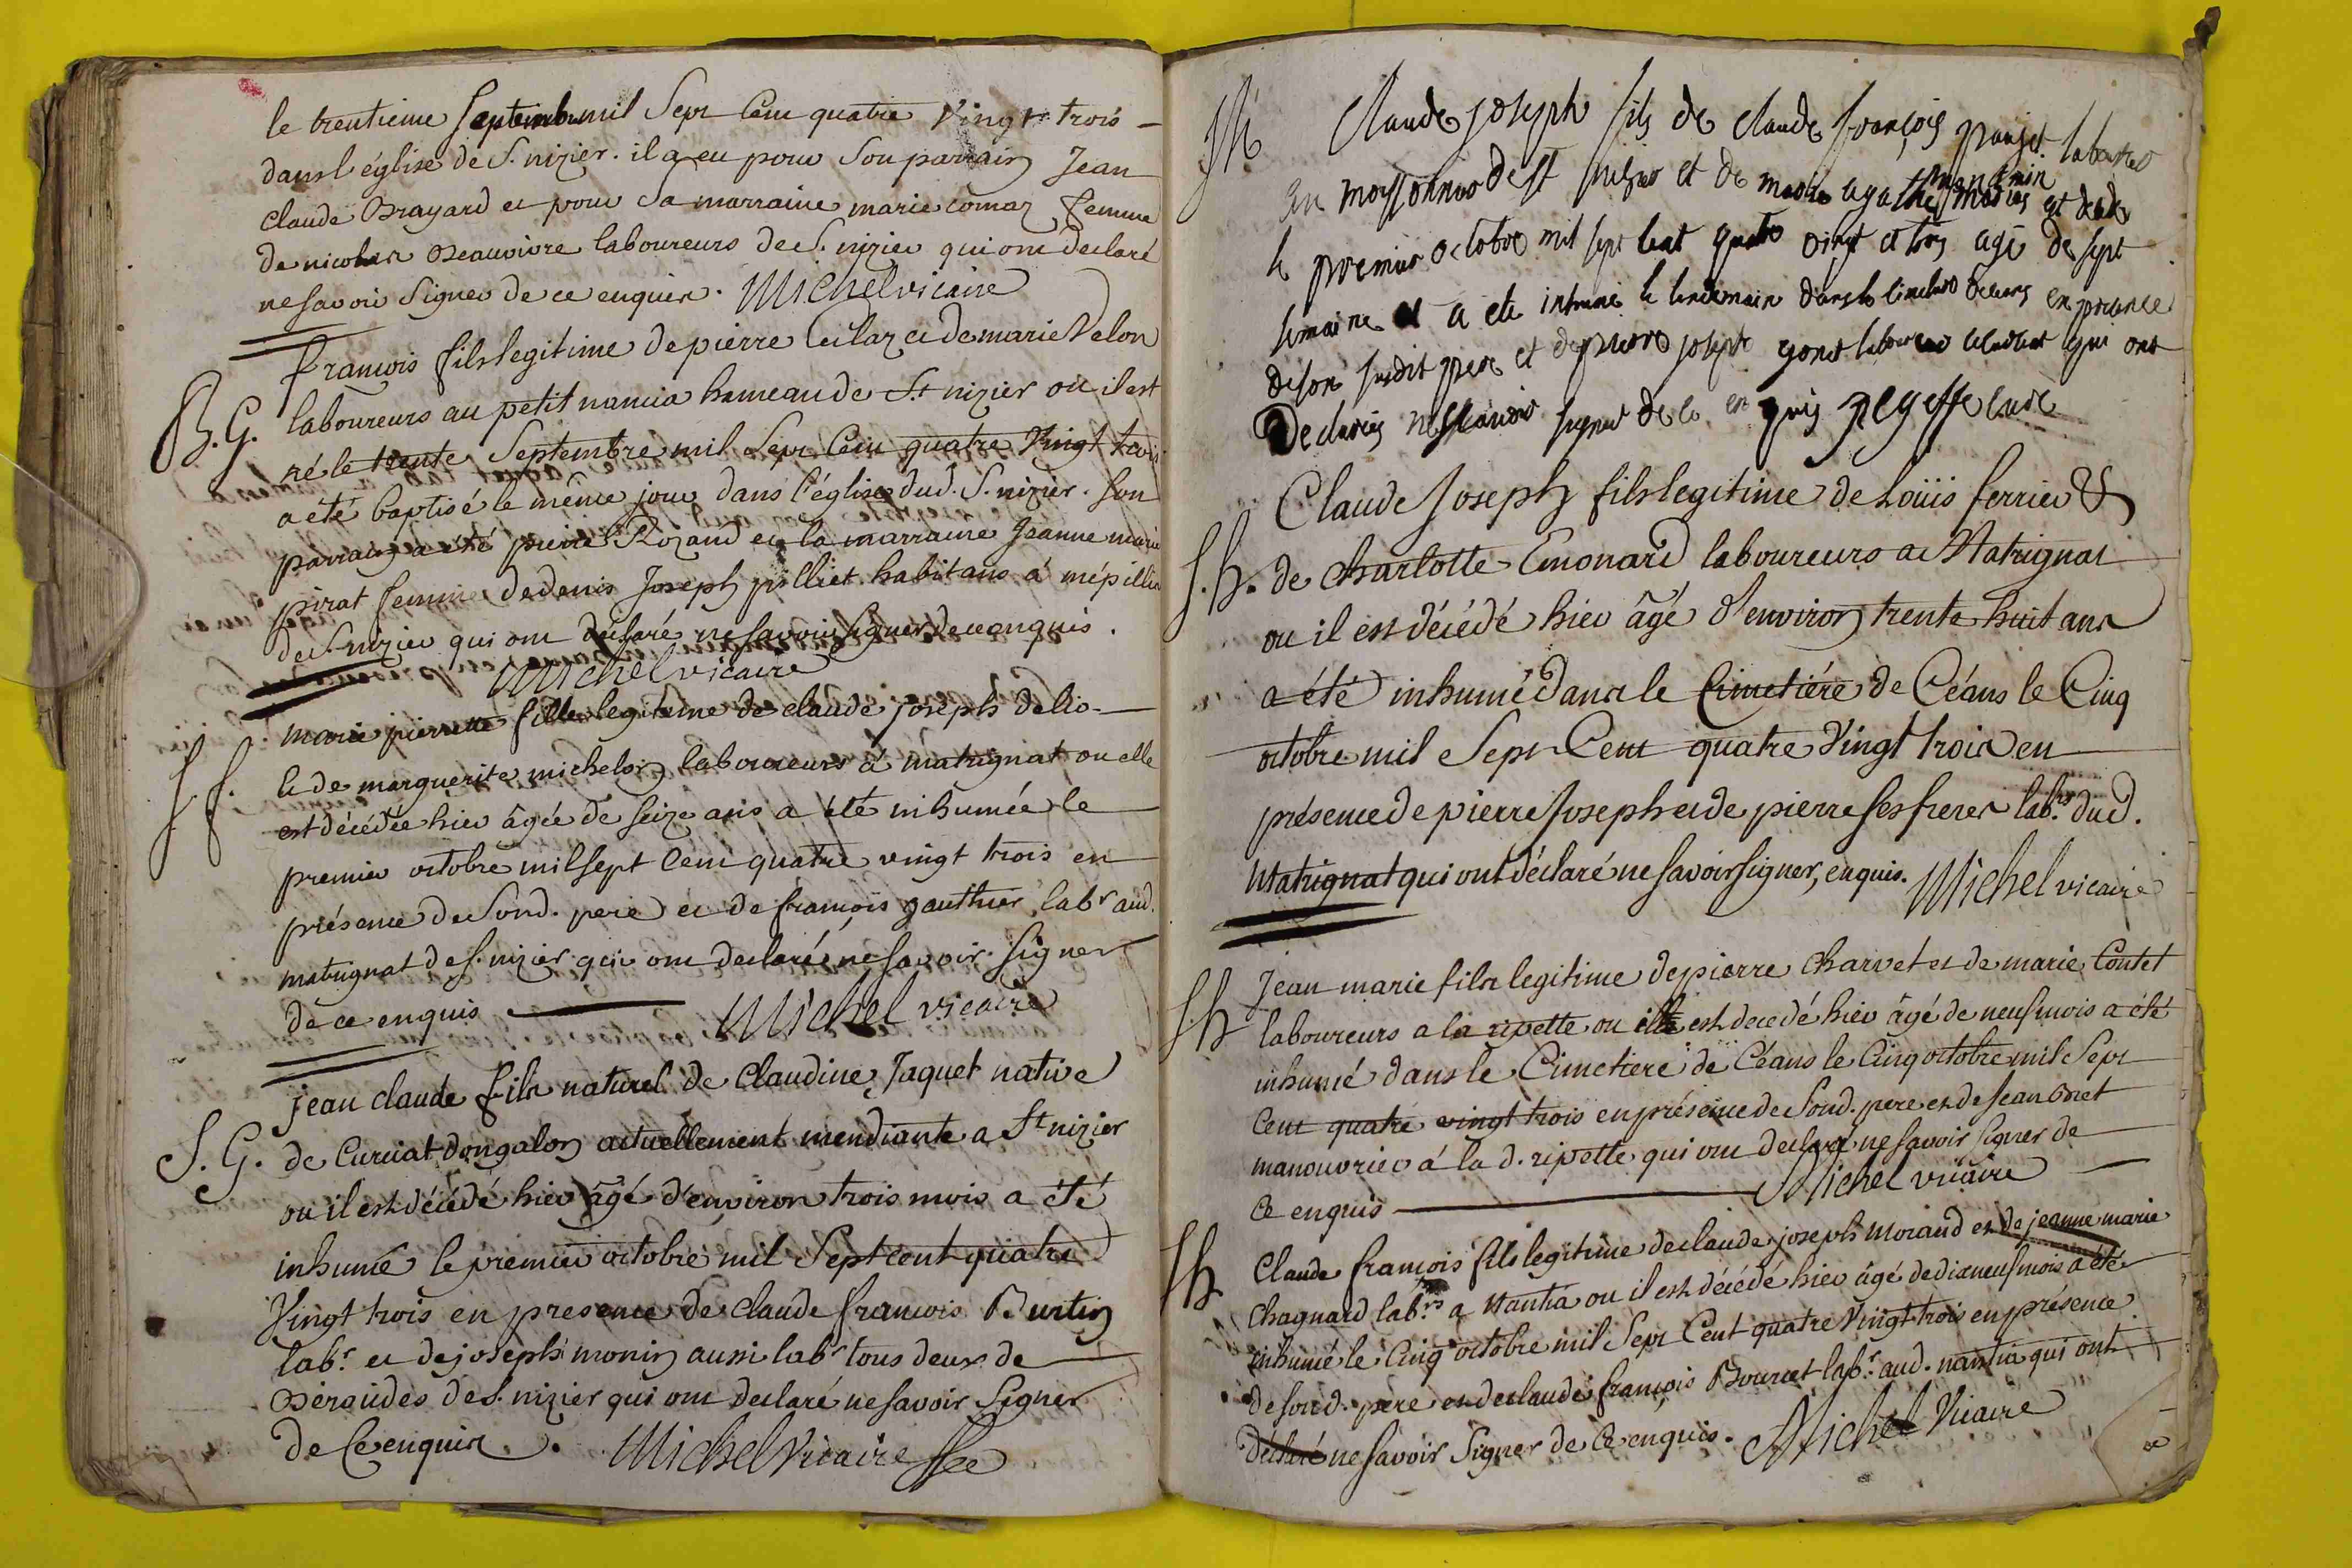 le trentieme Septembre mil Sept Cent quatre Vingt trois
dans l'église de S. nizier. il a eu pour Son parrain Jean
claude Brayard et pour Sa marraine marie comaz femme
de nicolas Beauvivre laboureurs de S. nizier qui ont declaré
ne savoir Signer de ce enquis. Michel vicaire
françois fils legitime de pierre et de marie Delon
B.G. laboureurs au petit nancia hameau de St nizier ou il est
né le trente Septembre mil Sept Cent quatre Vingt trois
a été baptisé le même jour dans l'église dud. S. nizier. Son
parrain a été pierre Rozand et la marraine Jeanne marie
pirat femme de denis Joseph pilliet habitans á mépillia
de S. nizier qui ont déclaré ne savoir signer de ce enquis.
Michel vicaire
marie pierrette fille legitime de claude joseph delio
S. f. et de marguerite michelon laboureurs á matrignat ou elle
est décédée hier âgée de seize ans a été inhumée le
premier octobre mil sept Cent quatre vingt trois en
présence de Sond. pere et de françois gauthier labr aud.
matrignat de S. nizier qui ont declaré ne savoir Signer
de ce enquis Michel vicaire
jean claude fils naturel de Claudine Jaquet native
S. G. de Curciat dongalon actuellement mendiante a St nizier
ou il est décédé hier âgé d'environ trois mois a été
inhumé le premier octobre mil Sept cent quatre
Vingt trois en presence de claude francois Burtin
labr. et de joseph monin aussi labr tous deux de
Béroudes de S. nizier qui ont declaré ne savoir Signer
de Ce enquis. Michel Vicaire
Claude joseph fils de claude françois pauget laboureur
en moissonnier de St nizier et de marie agathe mariés est decedé
le premier octobre mil sept cent quatre vingt et trois agé de sept
semaine et a ete inhumé le lendemain dans le cimetiere de ceans en presence
de son susdit pere et de pierre joseph gonet laboureur qui ont
declarés ne scavoir signer de ce enquis curé
Claude Joseph fils legitime de Loüis ferrier &
S.h. de charlotte Emonard laboureurs a Matrignat
ou il est décédé hier âgé d'environ trente huit ans
a été inhumé dans le Cimetiére de Céans le Cinq
octobre mil Sept Cent quatre Vingt trois en
présence de pierre Joseph et de pierre ses freres labrs. dud.
Matrignat qui ont déclaré ne savoir signer, enquis. Michel vicaire
S.h Jean marie fils legitime de pierre charvet et de marie Contet
laboureurs a la ripette ou il est decedé hier âgé de neuf mois a été
inhumé dans le Cimetiere de Céans le Cinq octobre mil Sept
Cent quatre vingt trois en présence de Sond. pere et de Jean Bret
manouvrier á la d. ripette qui ont declaré ne savoir Signer de
Ce enquis Michel vicaire
Sh Claude françois fils legitime de claude joseph Morand et de jeanne marie
Chagnard labrs. a Nantia ou il est décédé hier âgé de dix neuf mois a été
inhumé le Cinq octobre mil Sept Cent quatre Vingt trois en présence
de sond. pere et de claude françois Bourcet labr. aud. nantia qui ont
déclaré ne savoir Signer de Ce enquis. Michel Vicaire